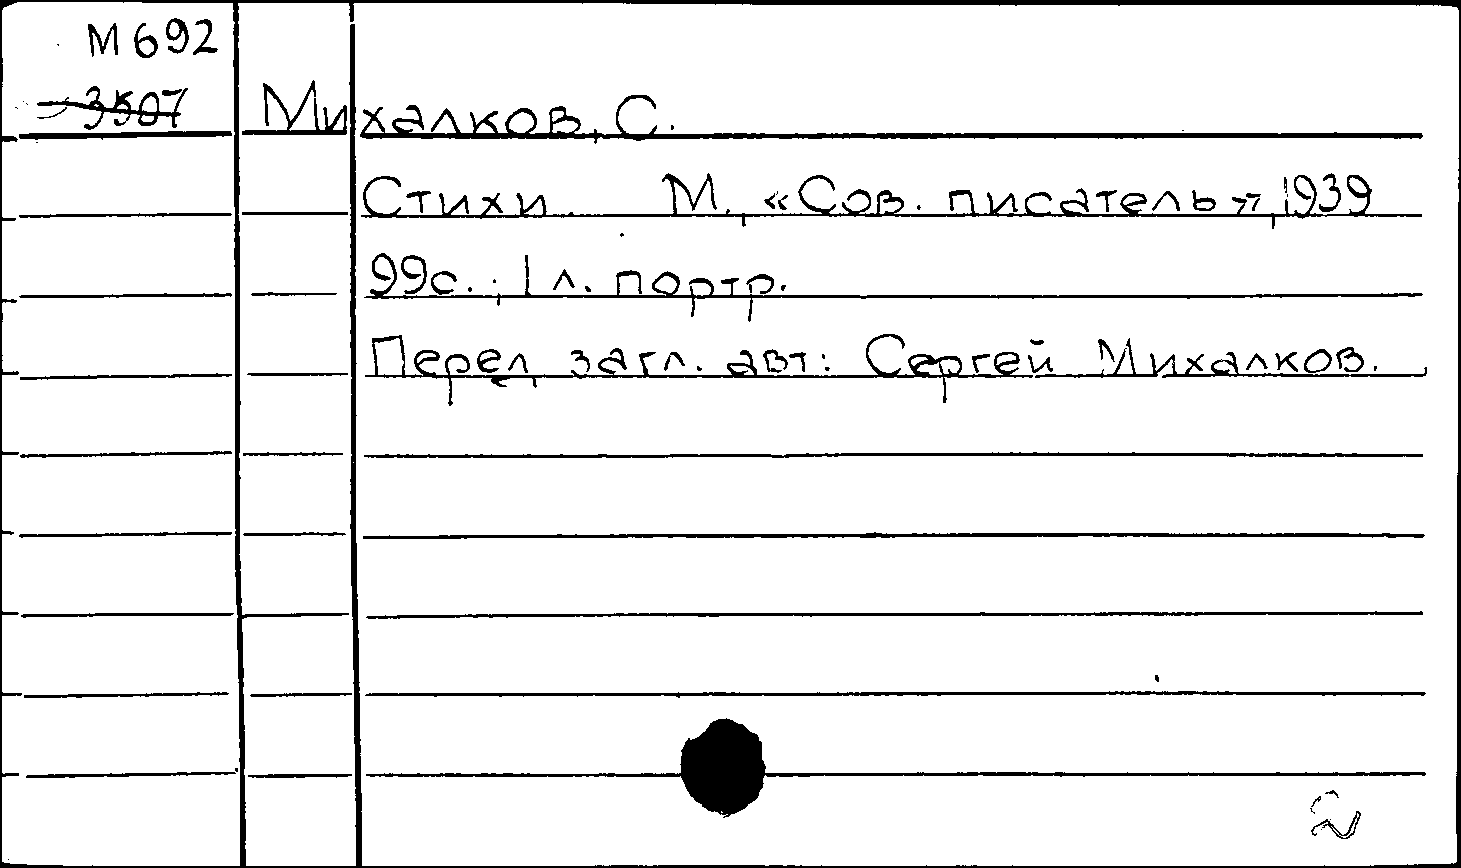 М692
3507
Михалков, С.
Стихи. М., «Сов. писатель», 1939
99с.; 1 л. портр.
Перед загл. авт: Сергей Михалков.